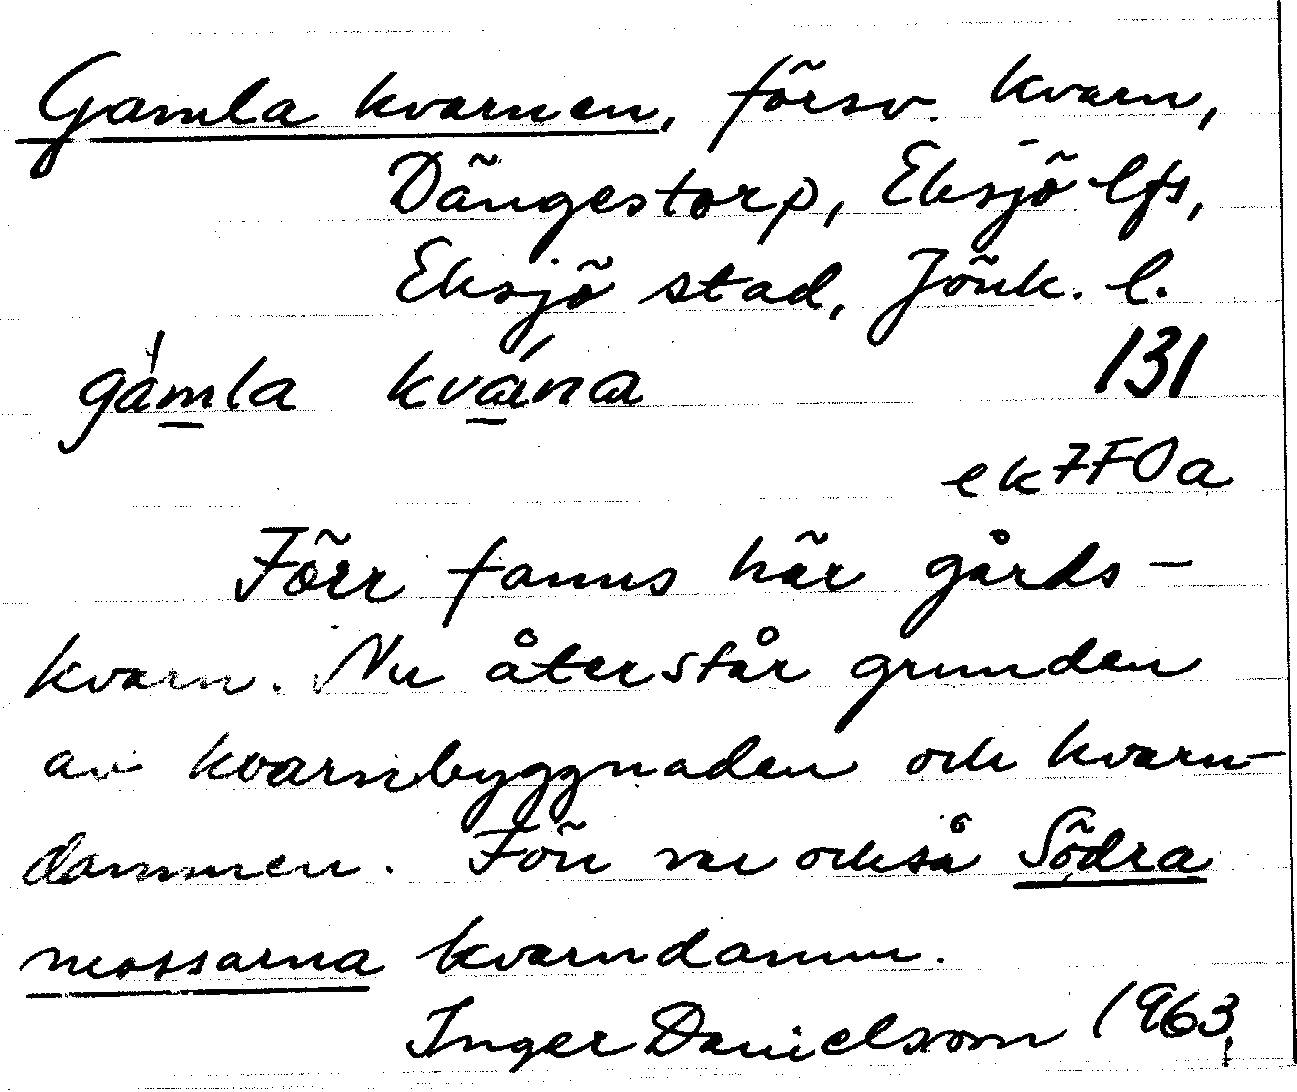 Gamla kvarnen, försv. kvarn,
Dängestorp, Eksjö lfs,
Eksjö stad, Jönk. l.
gámla kvána 131
ek 7F0a
Förr fanns här gårds-
kvarn. Nu återstår grunden
av kvarnbyggnaden och kvarn-
dammen. Förr var också Södra
mossarna kvarndamm.
Inger Danielsson 1963.